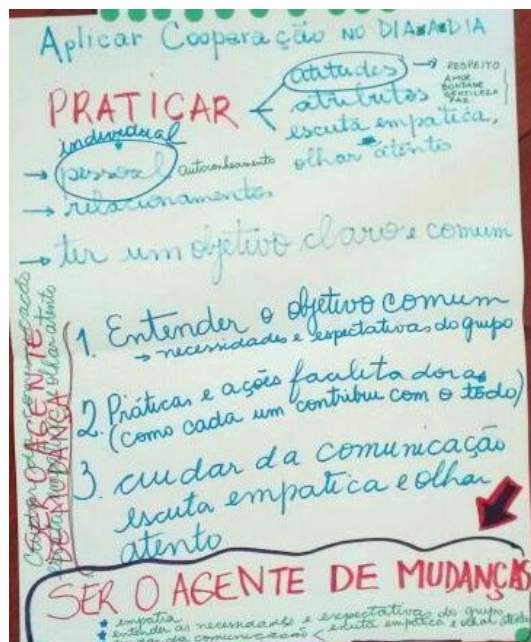 Aplicar Cooparação NO DIA A DIA
PRATICAR
atitudes → RESPEITO
AMOR
BONDADE
GENTILEZA
PAZ
atributos
escuta empatica,
olhar atento
individual
→ pessoal autoconhecimento
→ relacionamentos
→ ter um objetivo claro e comum
1. Entender o objetivo comum
→ necessidades e espectativas do grupo
2. Práticas e ações facilitadoras
(como cada um contribui com o todo)
3. cuidar da comunicação
escuta empatica e olhar
atento
SER O AGENTE
DE MUDANÇA
SER O AGENTE DE MUDANÇAS
* empatia
* entender as necessidades e expectativas do grupo
da comunicação, escuta empática e olhar atento